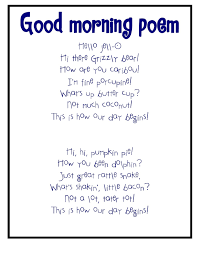 Good morning poem
Hello Jell-O
Hi there Grizzly bear!
How are you caribou!
I'm fine porcupine!
What's up butter cup?
Not much coconut!
This is how our day begins!
Hi, hi, pumpkin pie!
How you been dolphin?
Just great rattle snake,
What's shakin', little bacon?
Not a lot, tater tot!
This is how our day begins!